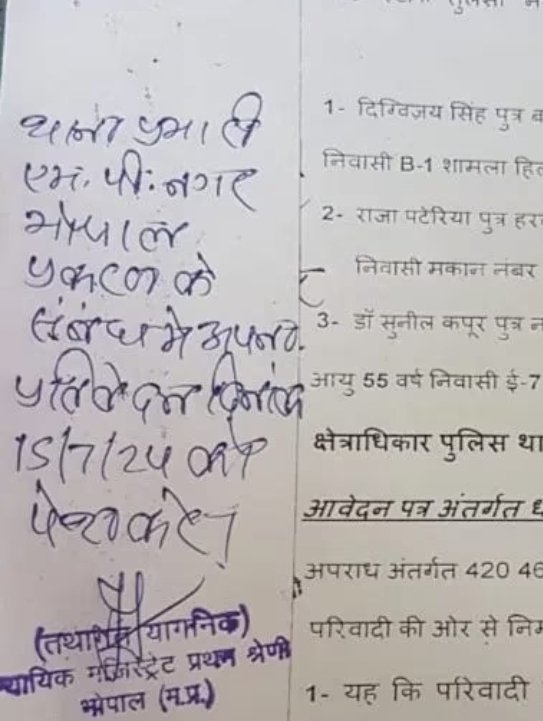 थाना प्रभारी
एम. पी. नगर
भोपाल
प्रकरण के
संबंध मे अपना
प्रतिवेदन दिनांक
15/7/24 को
पेश करे।
(तथागत याग्निक)
न्यायिक मजिस्ट्रेट प्रथम श्रेणी
भोपाल (म.प्र.)
1- दिग्विजय सिंह पुत्र
निवासी B-1 शामला
2- राजा पटेरिया पुत्र
निवासी मकान नंबर
3- डॉ सुनील कपूर पुत्र
आयु 55 वर्ष निवासी ई-7
क्षेत्राधिकार पुलिस
आवेदन पत्र अंतर्गत
अपराध अंतर्गत 420
परिवादी की ओर से
1- यह कि परिवादी